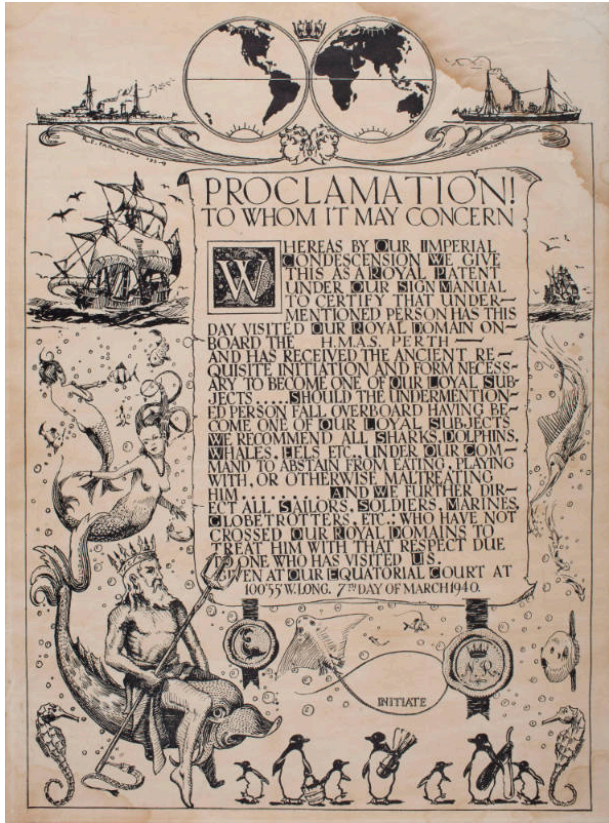 PROCLAMATION!
TO WHOM IT MAY CONCERN
WHEREAS BY OUR IMPERIAL
CONDESCENSION WE GIVE
THIS AS A ROYAL PATENT
UNDER OUR SIGN MANUAL
TO CERTIFY THAT UNDER—
MENTIONED PERSON HAS THIS
DAY VISITED OUR ROYAL DOMAIN ON-
BOARD THE H.M.A.S. PERTH —
AND HAS RECEIVED THE ANCIENT RE—
QUISITE INITIATION AND FORM NECESS-
ARY TO BECOME ONE OF OUR LOYAL SUB-
JECTS .... SHOULD THE UNDERMENTION-
ED PERSON FALL OVERBOARD HAVING BE-
COME ONE OF OUR LOYAL SUBJECTS
WE RECOMMEND ALL SHARKS, DOLPHINS,
WHALES, EELS ETC., UNDER OUR COM—
MAND TO ABSTAIN FROM EATING, PLAYING
WITH, OR OTHERWISE MALTREATING
HIM........ AND WE FURTHER DIR—
ECT ALL SAILORS, SOLDIERS, MARINES,
GLOBETROTTERS, ETC.; WHO HAVE NOT
CROSSED OUR ROYAL DOMAINS TO
TREAT HIM WITH THAT RESPECT DUE
TO ONE WHO HAS VISITED US.
GIVEN AT OUR EQUATORIAL COURT AT
100°55'W. LONG. 7TH DAY OF MARCH 1940.
INITIATE